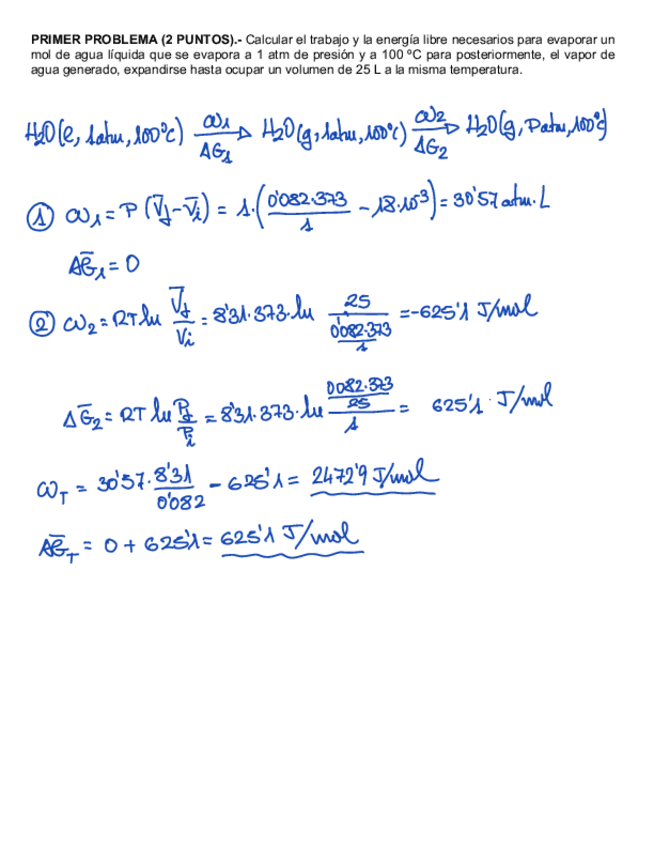 PRIMER PROBLEMA (2 PUNTOS).- Calcular el trabajo y la energía libre necesarios para evaporar un
mol de agua líquida que se evapora a 1 atm de presión y a 100 ºC para posteriormente, el vapor de
agua generado, expandirse hasta ocupar un volumen de 25 L a la misma temperatura.
H2O(l, 1atm, 100ºC) —ω1/ΔG1→ H2O(g, 1atm, 100ºC) —ω2/ΔG2→ H2O(g, P atm, 100ºC)
① ω1 = P (V̄f - V̄i) = 1·(0'082·373/1 - 18·10⁻³) = 30'57 atm·L
ΔḠ1 = 0
② ω2 = RT ln V̄f/V̄i = 8'31·373·ln 25/(0'082·373/1) = -625'1 J/mol
ΔḠ2 = RT ln Pf/Pi = 8'31·373·ln (0'082·373/25)/1 = 625'1 J/mol
ωT = 30'57·8'31/0'082 - 625'1 = 2472'9 J/mol
ΔḠT = 0 + 625'1 = 625'1 J/mol